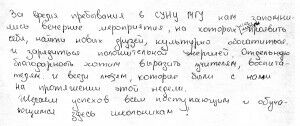 За время пребывания в СУНЦ МГУ нам запомни-
лись вечерние мероприятия, на которых проявить
себя, найти новых друзей, культурно обогатиться
и зарядиться положительной энергией. Отдельную
благодарность хотим выразить учителям, воспита-
телям и всем людям, которые были с нами
на протяжении этой недели.
Желаем успехов всем поступающим и обуча-
ющимся здесь школьникам!